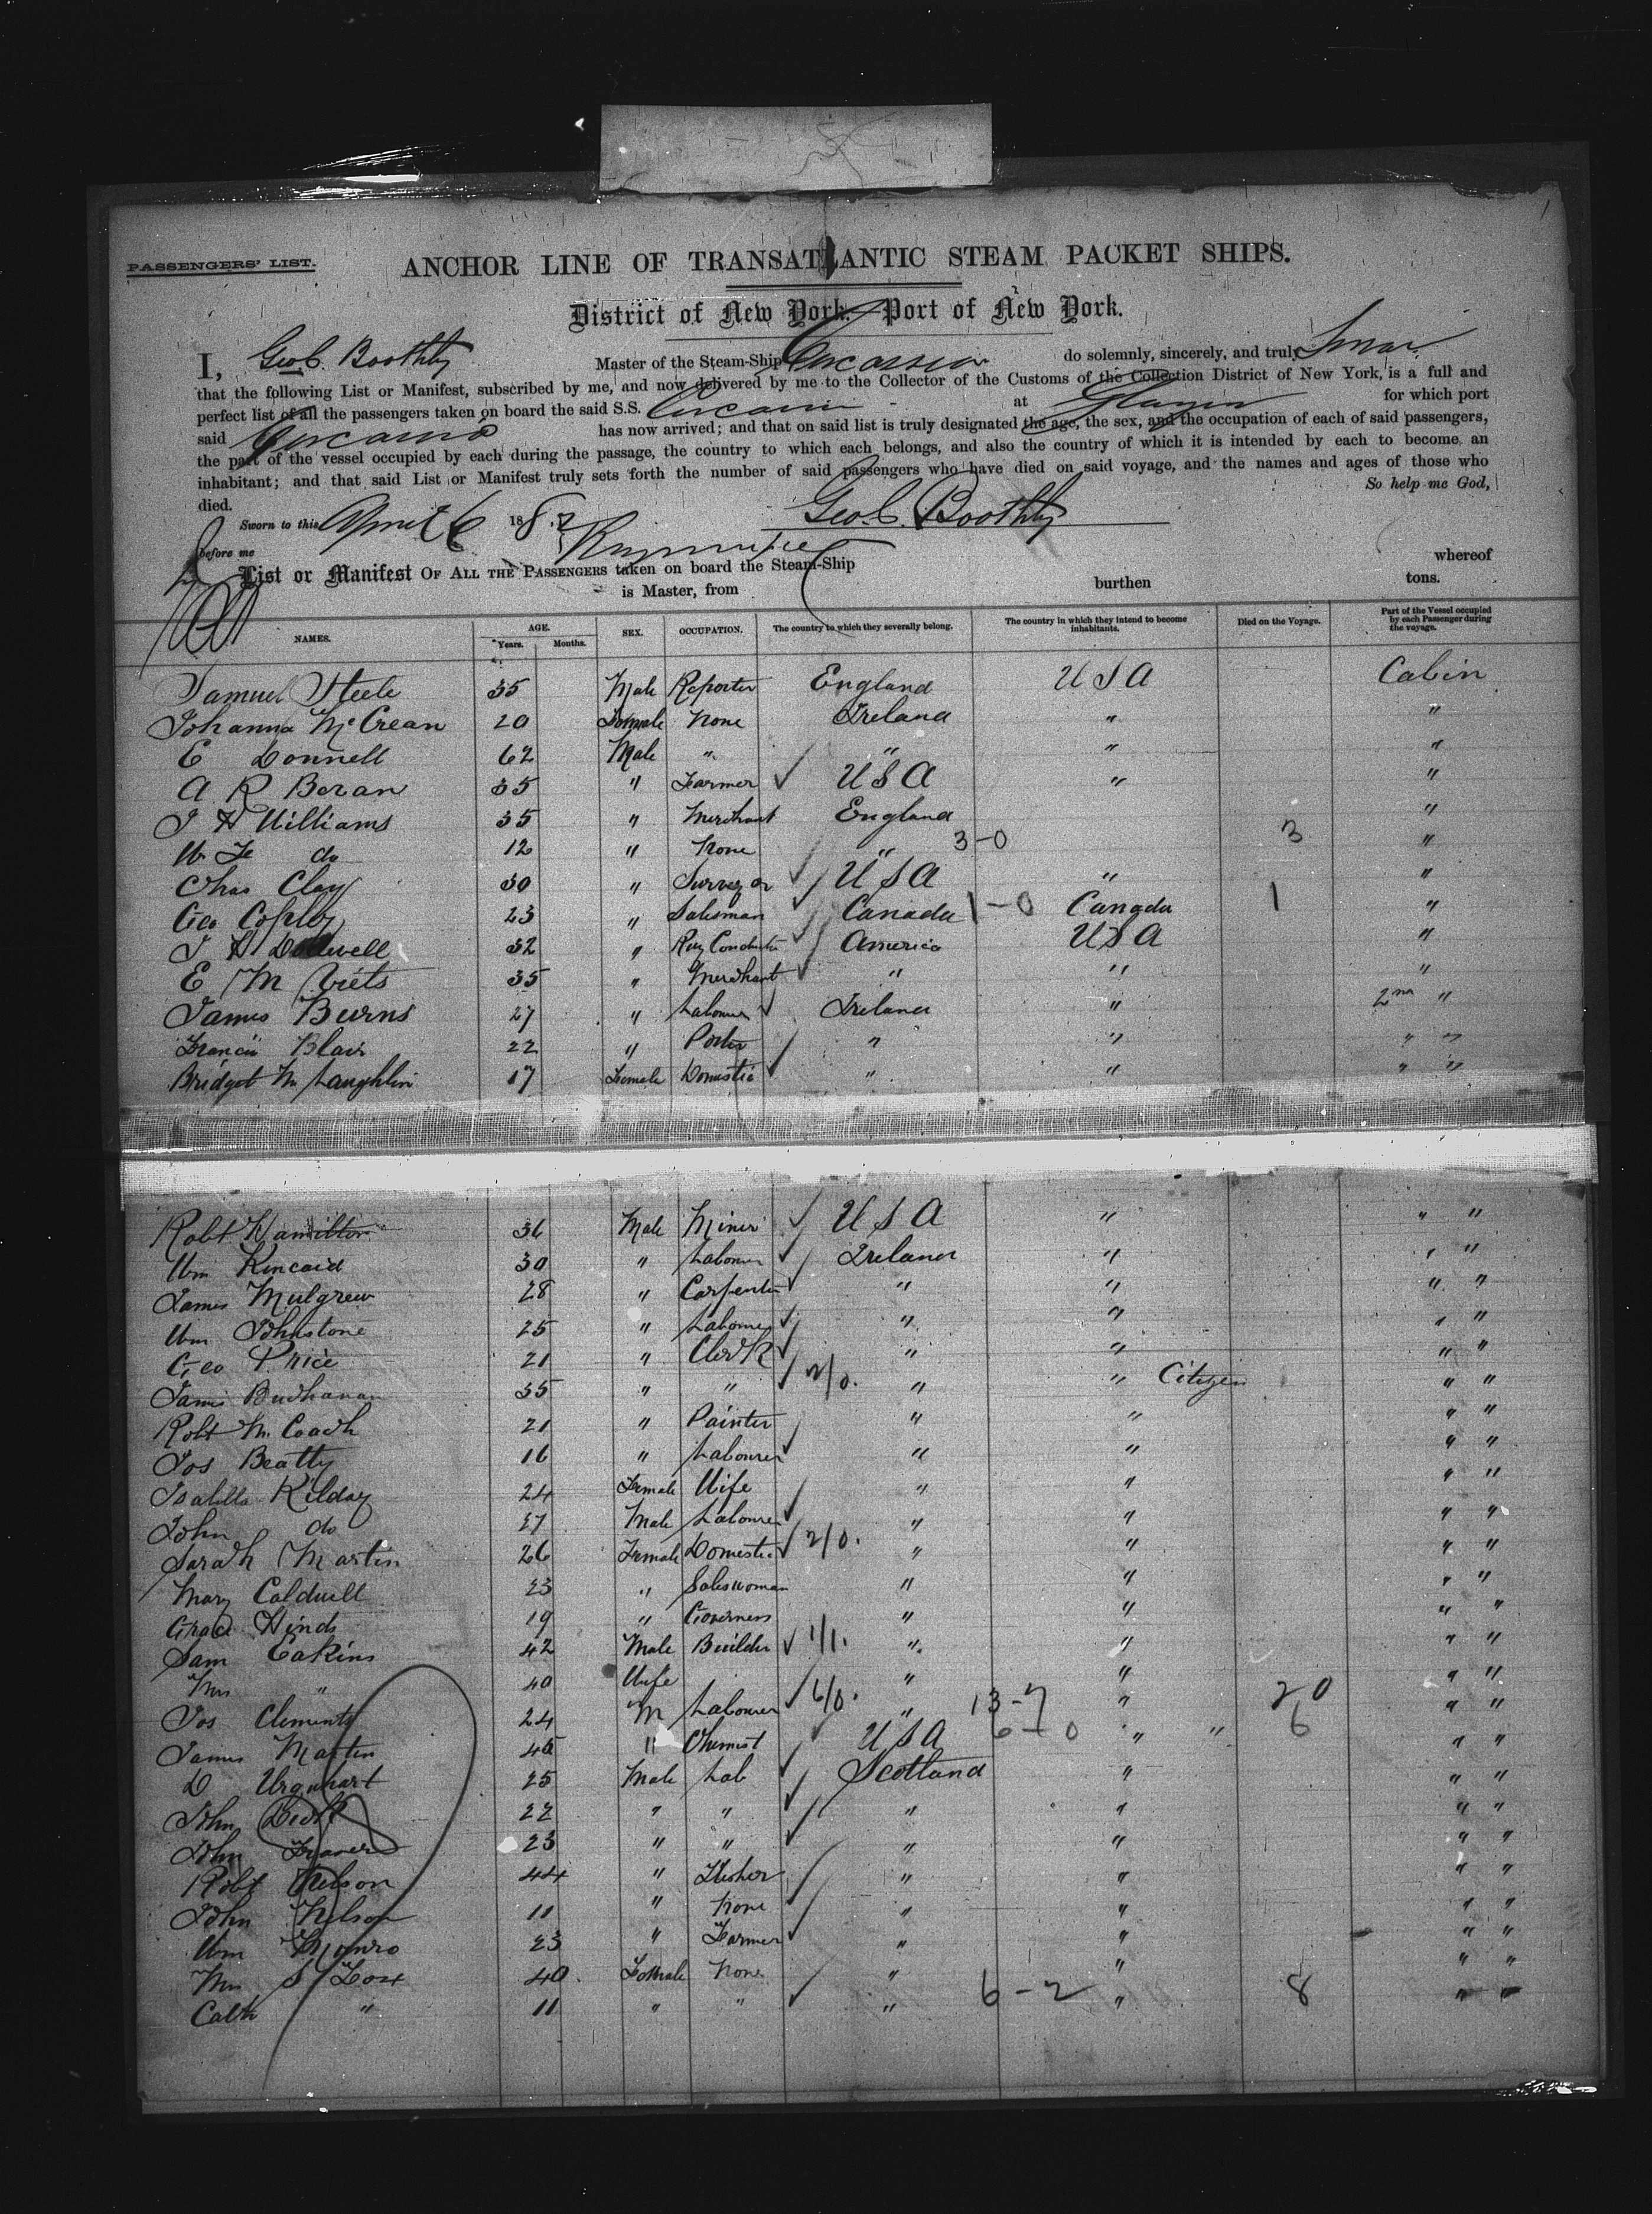 PASSENGERS' LIST.
ANCHOR LINE OF TRANSATLANTIC STEAM PACKET SHIPS.
District of New York. Port of New York.
I, Geo C. Boothby Master of the Steam-Ship Circassia do solemnly, sincerely, and truly Swear
that the following List or Manifest, subscribed by me, and now delivered by me to the Collector of the Customs of the Collection District of New York, is a full and
perfect list of all the passengers taken on board the said S.S. Circassia at Glasgow for which port
said Circassia has now arrived; and that on said list is truly designated the age, the sex, and the occupation of each of said passengers,
the part of the vessel occupied by each during the passage, the country to which each belongs, and also the country of which it is intended by each to become an
inhabitant; and that said List or Manifest truly sets forth the number of said passengers who have died on said voyage, and the names and ages of those who
died. So help me God,
Sworn to this April 6 1882 Geo C. Boothby
before me
List or Manifest OF ALL THE PASSENGERS taken on board the Steam-Ship whereof
is Master, from burthen tons.
NAMES. AGE. Years. Months. SEX. OCCUPATION. The country to which they severally belong. The country in which they intend to become inhabitants. Died on the Voyage. Part of the Vessel occupied by each Passenger during the voyage.
Samuel Steele 35 Male Reporter England U S A Cabin
Johanna McCrean 20 Female None Ireland " "
E Donnell 62 Male " " " "
A R Beran 35 " Farmer ✓ U S A " "
J H Williams 35 " Merchant England "
W Fe do 12 " None " 3-0 3 "
Chas Clay 30 " Surveyor ✓ U S A " "
Geo Copley 23 " Salesman ✓ Canada 1-0 Canada 1 "
J H Dollwell 32 " Rwy Conductor ✓ America U S A "
E M Viets 35 " Merchant ✓ " " "
James Burns 27 " Labourer ✓ Ireland " 2nd "
Francis Blair 22 " Porter ✓ " " " "
Bridget McLaughlin 17 Female Domestic ✓ " " " "
Robt Hamilton 36 Male Miner ✓ U S A " " "
Wm Kincaid 30 " Labourer ✓ Ireland " " "
James Mulgrew 28 " Carpenter ✓ " " " "
Wm Johnstone 25 " Labourer ✓ " " " "
Geo Price 21 " Clerk ✓ " " " "
James Buchanan 35 " " ✓ 2/0. " " Citizen " "
Robt McCoach 21 " Painter ✓ " " " "
Jos Beatty 16 " Labourer ✓ " " " "
Isabella Kilday 24 Female Wife ✓ " " " "
John do 27 Male Labourer ✓ " " " "
Sarah Martin 26 Female Domestic ✓ 2/0. " " " "
Mary Caldwell 23 " Saleswoman " " " "
Grace Hinds 19 " Governess " " " "
Sam Eakins 42 Male Builder ✓ 1/1. " " " "
Mrs " 40 Wife " " " "
Jos Clements 24 M Labourer ✓ 6/0. " 13-7 " 20 " "
James Martin 45 " Chemist ✓ U S A 6-0 " " 6 " "
D Urquhart 25 Male Lab ✓ Scotland " " "
John 22 " " ✓ " " " "
John Fraser 23 " " ✓ " " " "
Robt Nelson 44 " Flesher ✓ " " " "
John Nelson 11 " None ✓ " " " "
Wm Munro 23 " Farmer ✓ " " " "
Mrs S Fox 40 Female None ✓ " " " "
Cath " 11 " " ✓ " 6-2 " 8 " "